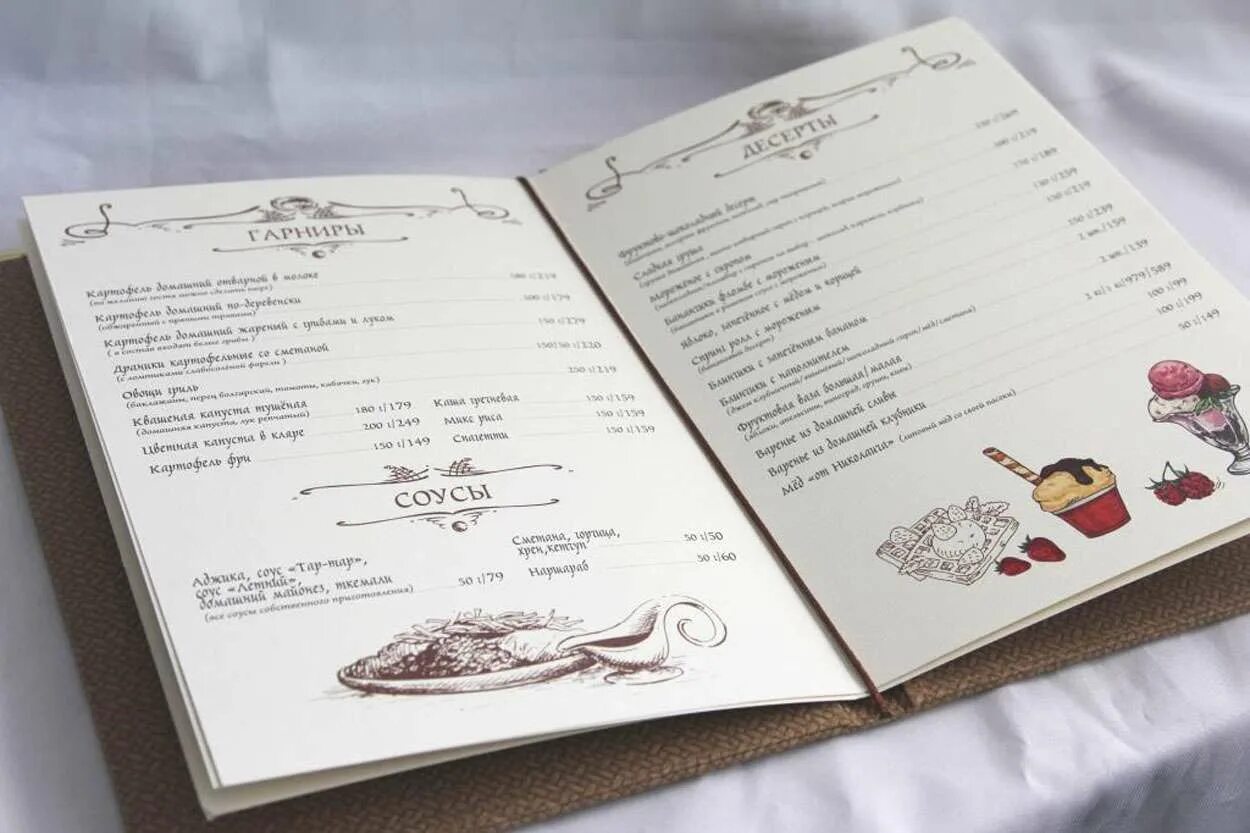 ГАРНИРЫ
Картофель домашний отварной в молоке
(по желанию гостя можно сделать пюре)
Картофель домашний по-деревенски 300 г/179
(обжаренный с пряными травами)
Картофель домашний жареный с грибами и луком 350 г/279
(в состав входят белые грибы)
Драники картофельные со сметаной 150/50 г/220
(с ломтиками слабосолёной форели)
Овощи гриль 250 г/219
(баклажаны, перец болгарский, томаты, кабачки, лук)
Квашеная капуста тушёная 180 г/179
(домашняя капуста, лук репчатый)
Цветная капуста в кляре 200 г/249
Картофель фри 150 г/149
Каша гречневая 150 г/159
Микс риса 150 г/159
Спагетти 150 г/159
СОУСЫ
Аджика, соус «Тар-тар»,
соус «Летний»,
домашний майонез, ткемали 50 г/79
(все соусы собственного приготовления)
Сметана, горчица,
хрен,кетчуп 50 г/50
Наршараб 50 г/60
ДЕСЕРТЫ
Фруктово-шоколадный десерт
Сладкая груша
Мороженое с сиропом
Бананчики фламбе с мороженым
(бананчики в ромовом соусе с мороженым)
Яблоко, запечённое с мёдом и корицей
Спринг ролл с мороженым 150 г/239
(банановый десерт)
Блинчики с запечённым бананом 2 шт./159
Блинчики с наполнителем 2 шт./139
(джем клубничный/вишнёвый/шоколадный сироп/мёд/сметана)
Фруктовая ваза большая/малая 2 кг/1 кг/979/589
(яблоки, апельсины, виноград, груши, киви)
Варенье из домашней сливы 100 г/99
Варенье из домашней клубники 100 г/199
Мёд «от Николаича» (липовый мёд со своей пасеки) 50 г/149